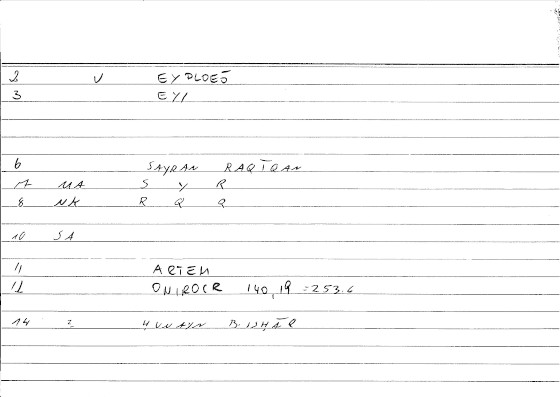 2 V EXPLOEŌ
3 EXI
6 SAYRAN RAQĪQAN
7 MA S Y R
8 NK R Q Q
10 SA
11 ARTEM
12 ONIROCR 140,19 =253.6
14 2 HUNAYN B.ISHĀR